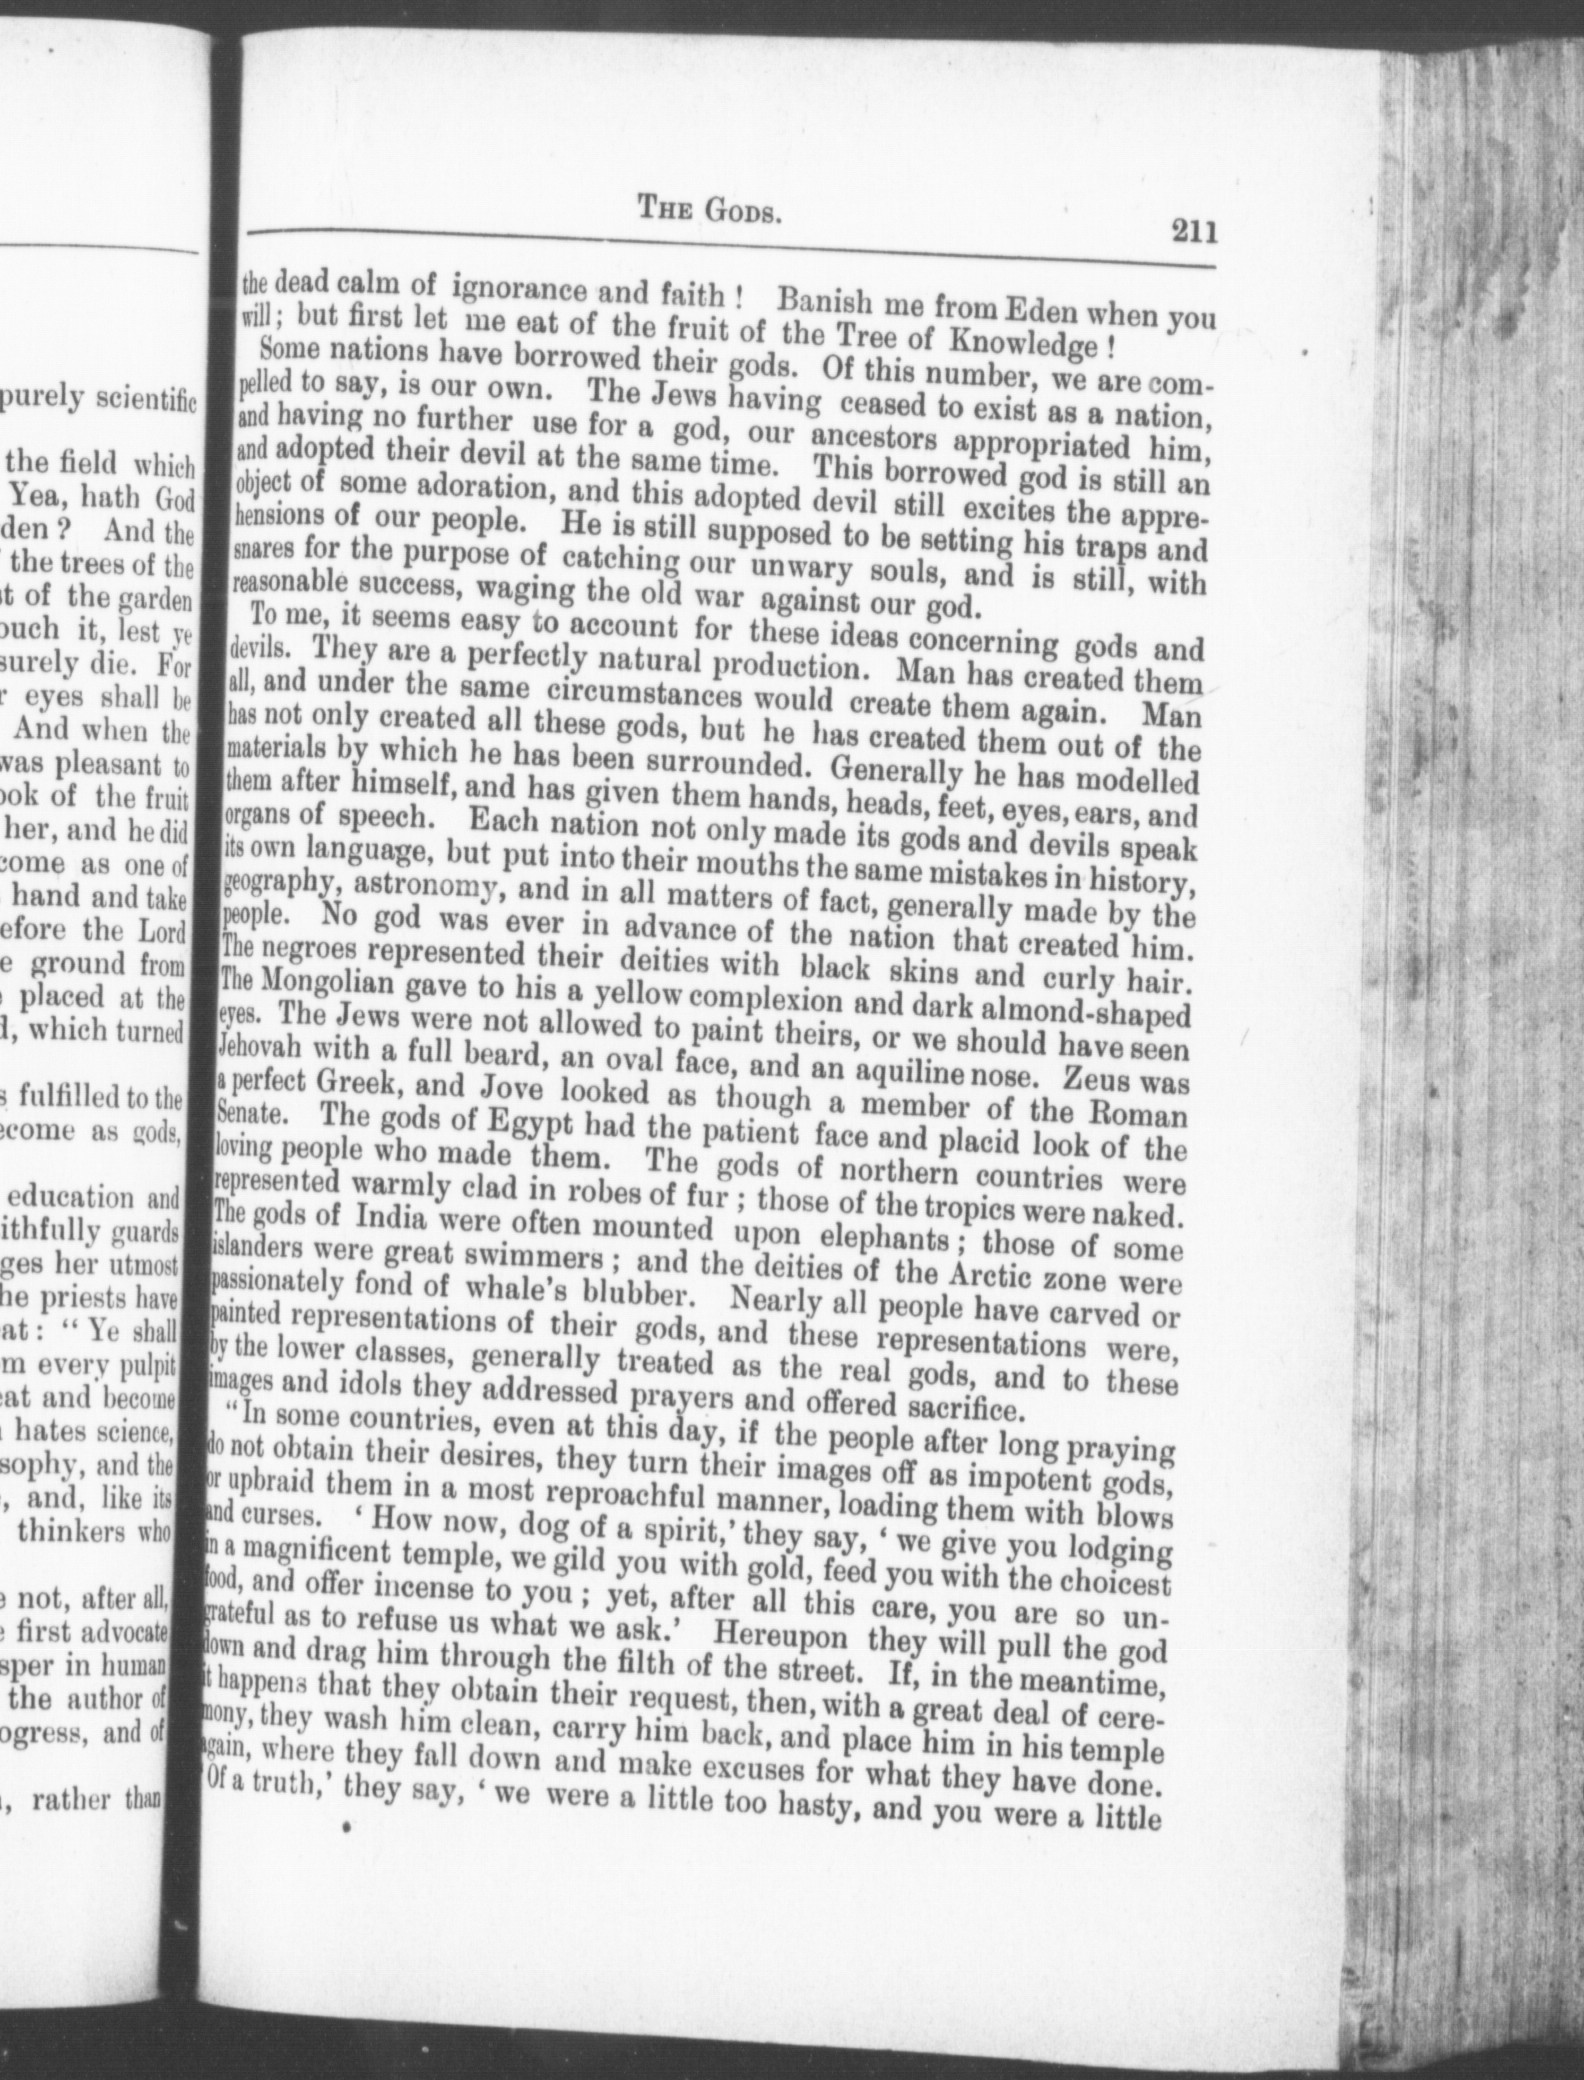 purely scientific
the field which
Yea, hath God
den ? And the
the trees of the
st of the garden
ouch it, lest ye
surely die. For
r eyes shall be
And when the
was pleasant to
ook of the fruit
her, and he did
come as one of
hand and take
efore the Lord
e ground from
placed at the
d, which turned
s fulfilled to the
ecome as gods,
education and
ithfully guards
ges her utmost
he priests have
at : “ Ye shall
m every pulpit
eat and become
hates science,
sophy, and the
, and, like its
thinkers who
e not, after all,
e first advocate
sper in human
the author of
ogress, and of
, rather than
THE GODS.
211
the dead calm of ignorance and faith ! Banish me from Eden when you
will ; but first let me eat of the fruit of the Tree of Knowledge !
Some nations have borrowed their gods. Of this number, we are com-
pelled to say, is our own. The Jews having ceased to exist as a nation,
and having no further use for a god, our ancestors appropriated him,
and adopted their devil at the same time. This borrowed god is still an
object of some adoration, and this adopted devil still excites the appre-
hensions of our people. He is still supposed to be setting his traps and
snares for the purpose of catching our unwary souls, and is still, with
reasonable success, waging the old war against our god.
To me, it seems easy to account for these ideas concerning gods and
devils. They are a perfectly natural production. Man has created them
all, and under the same circumstances would create them again. Man
has not only created all these gods, but he has created them out of the
materials by which he has been surrounded. Generally he has modelled
them after himself, and has given them hands, heads, feet, eyes, ears, and
organs of speech. Each nation not only made its gods and devils speak
its own language, but put into their mouths the same mistakes in history,
geography, astronomy, and in all matters of fact, generally made by the
people. No god was ever in advance of the nation that created him.
The negroes represented their deities with black skins and curly hair.
The Mongolian gave to his a yellow complexion and dark almond-shaped
eyes. The Jews were not allowed to paint theirs, or we should have seen
Jehovah with a full beard, an oval face, and an aquiline nose. Zeus was
a perfect Greek, and Jove looked as though a member of the Roman
Senate. The gods of Egypt had the patient face and placid look of the
loving people who made them. The gods of northern countries were
represented warmly clad in robes of fur ; those of the tropics were naked.
The gods of India were often mounted upon elephants ; those of some
islanders were great swimmers ; and the deities of the Arctic zone were
passionately fond of whale's blubber. Nearly all people have carved or
painted representations of their gods, and these representations were,
by the lower classes, generally treated as the real gods, and to these
images and idols they addressed prayers and offered sacrifice.
“ In some countries, even at this day, if the people after long praying
do not obtain their desires, they turn their images off as impotent gods,
or upbraid them in a most reproachful manner, loading them with blows
and curses. ‘ How now, dog of a spirit,’ they say, ‘ we give you lodging
in a magnificent temple, we gild you with gold, feed you with the choicest
food, and offer incense to you ; yet, after all this care, you are so un-
grateful as to refuse us what we ask.’ Hereupon they will pull the god
down and drag him through the filth of the street. If, in the meantime,
it happens that they obtain their request, then, with a great deal of cere-
mony, they wash him clean, carry him back, and place him in his temple
again, where they fall down and make excuses for what they have done.
‘Of a truth,’ they say, ‘ we were a little too hasty, and you were a little